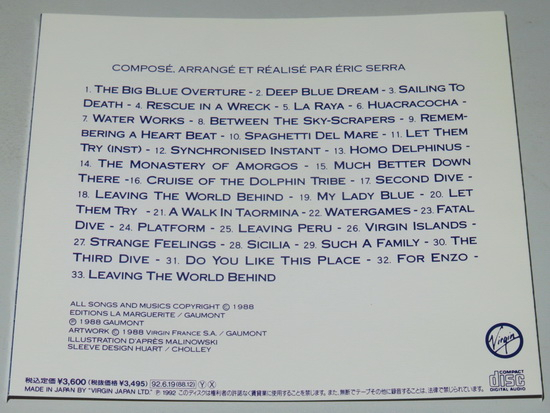 COMPOSÉ, ARRANGÉ ET RÉALISÉ PAR ÉRIC SERRA
1. THE BIG BLUE OVERTURE - 2. DEEP BLUE DREAM - 3. SAILING TO
DEATH - 4. RESCUE IN A WRECK - 5. LA RAYA - 6. HUACRACOCHA -
7. WATER WORKS - 8. BETWEEN THE SKY-SCRAPERS - 9. REMEM-
BERING A HEART BEAT - 10. SPAGHETTI DEL MARE - 11. LET THEM
TRY (INST) - 12. SYNCHRONISED INSTANT - 13. HOMO DELPHINUS -
14. THE MONASTERY OF AMORGOS - 15. MUCH BETTER DOWN
THERE - 16. CRUISE OF THE DOLPHIN TRIBE - 17. SECOND DIVE -
18. LEAVING THE WORLD BEHIND - 19. MY LADY BLUE - 20. LET
THEM TRY - 21. A WALK IN TAORMINA - 22. WATERGAMES - 23. FATAL
DIVE - 24. PLATFORM - 25. LEAVING PERU - 26. VIRGIN ISLANDS -
27. STRANGE FEELINGS - 28. SICILIA - 29. SUCH A FAMILY - 30. THE
THIRD DIVE - 31. DO YOU LIKE THIS PLACE - 32. FOR ENZO -
33. LEAVING THE WORLD BEHIND
ALL SONGS AND MUSICS COPYRIGHT © 1988
EDITIONS LA MARGUERITE / GAUMONT
℗ 1988 GAUMONT
ARTWORK © 1988 VIRGIN FRANCE S.A. / GAUMONT
ILLUSTRATION D'APRÈS MALINOWSKI
SLEEVE DESIGN HUART / CHOLLEY
Virgin
COMPACT
disc
DIGITAL AUDIO
税込定価¥3,600(税抜価格¥3,495) 92.6.19(88.12) Ⓨ Ⓧ
MADE IN JAPAN BY "VIRGIN JAPAN LTD." ℗ 1992 このディスクは権利者の許諾なく賃貸業に使用することを禁じます。また、無断でテープその他に録音することは、法律で禁じられています。